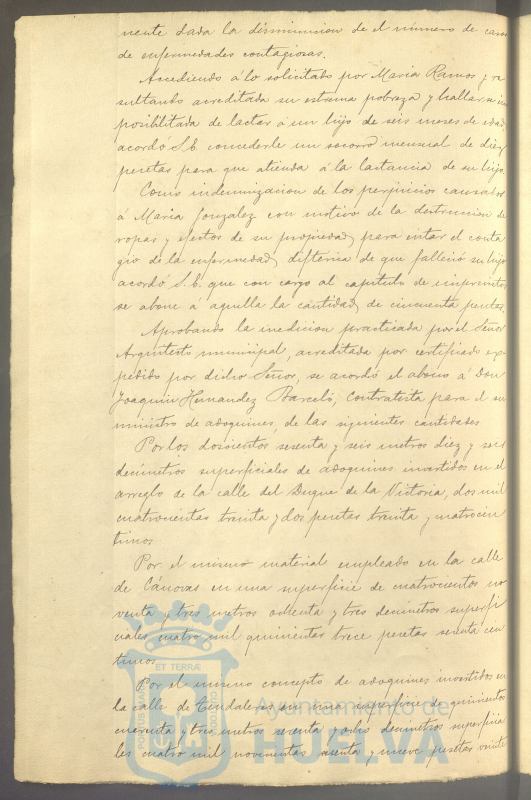 mente dada la disminucion de el número de casos
de enfermedades contagiosas.
Accediendo á lo solicitado por Maria Ramos y re
sultando acreditada su estrema pobreza y hallarse im
posibilitada de lactar á un hijo de seis meses de edad
acordó S.E. concederle un socorro mensual de diez
pesetas para que atienda á la lactancia de su hijo.
Como indemnizacion de los perjuicios causados
á Maria Gonzalez con motivo de la destruccion de
ropas y efectos de su propiedad para evitar el conta
gio de la enfermedad difterica de que falleció su hijo
acordó S.E. que con cargo al capitulo de imprevistos
se abone á aquella la cantidad de cincuenta pesetas.
Aprobando la medicion practicada por el Señor
Arquitecto municipal, acreditada por certificado ex
pedido por dicho Señor, se acordó el abono á Don
Joaquin Hernandez Barceló, Contratista para el su
ministro de adoquines, de las siguientes cantidades
Por los doscientos sesenta y seis metros diez y seis
decímetros superficiales de adoquines invertidos en el
arreglo de la calle del Duque de la Victoria, dos mil
cuatrocientas treinta y dos pesetas treinta y cuatro cen
timos
Por el mismo material empleado en la calle
de Cánovas en una superficie de cuatrocientos no
venta y tres metros ochenta y tres decímetros superfi
ciales cuatro mil quinientas trece pesetas sesenta cen
timos
Por el mismo concepto de adoquines invertidos en
la calle de Tendaleras en una superficie de quinientos
cuarenta y tres metros sesenta y ocho decímetros superficia
les cuatro mil novecientas sesenta y nueve pesetas veinte
ET TERRÆ
PORTUS MARIS
CUSTODIA
Ayuntamiento de
HUELVA